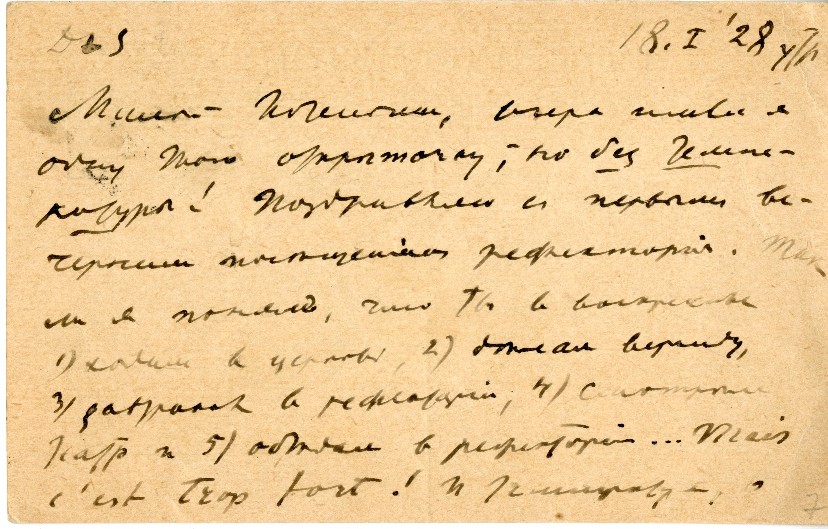 18. I '28 утр
Милый Котеночек, вчера имел я
одну твою открыточку, но без темпе-
ратуры! Поздравляю с первым ве-
черним посещеніем рефекторія. Так
ли я понял, что Ты в воскресенье
1) ходил в церковь, 2) делал веранду,
3) завтракал в рефекторіи, 4) смотрел
Театр и 5) обедал в рефекторіи... Mais
c'est trop fort! И температура,
7